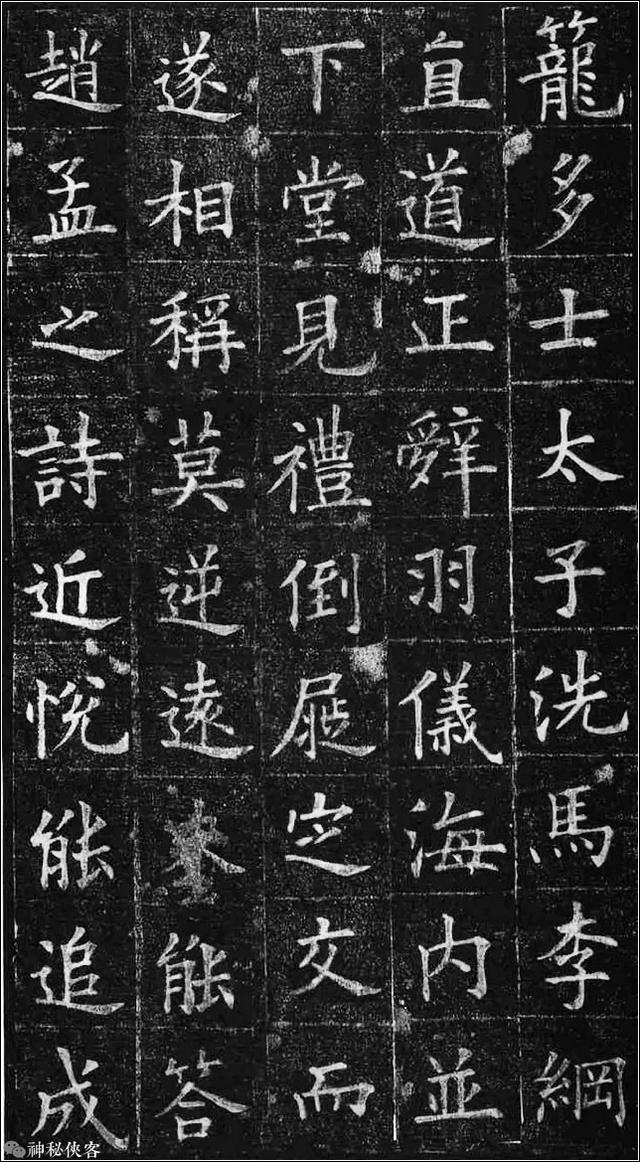 籠多士太子洗馬李綱
直道正辤羽儀海内並
下堂見禮倒屣定交而
遂相稱莫逆遠能答
趙孟之詩近悅能追成
神秘俠客